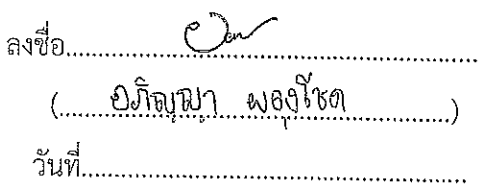 ลงชื่อ................................................
(........อภิญญา ผองโชค............)
วันที่................................................